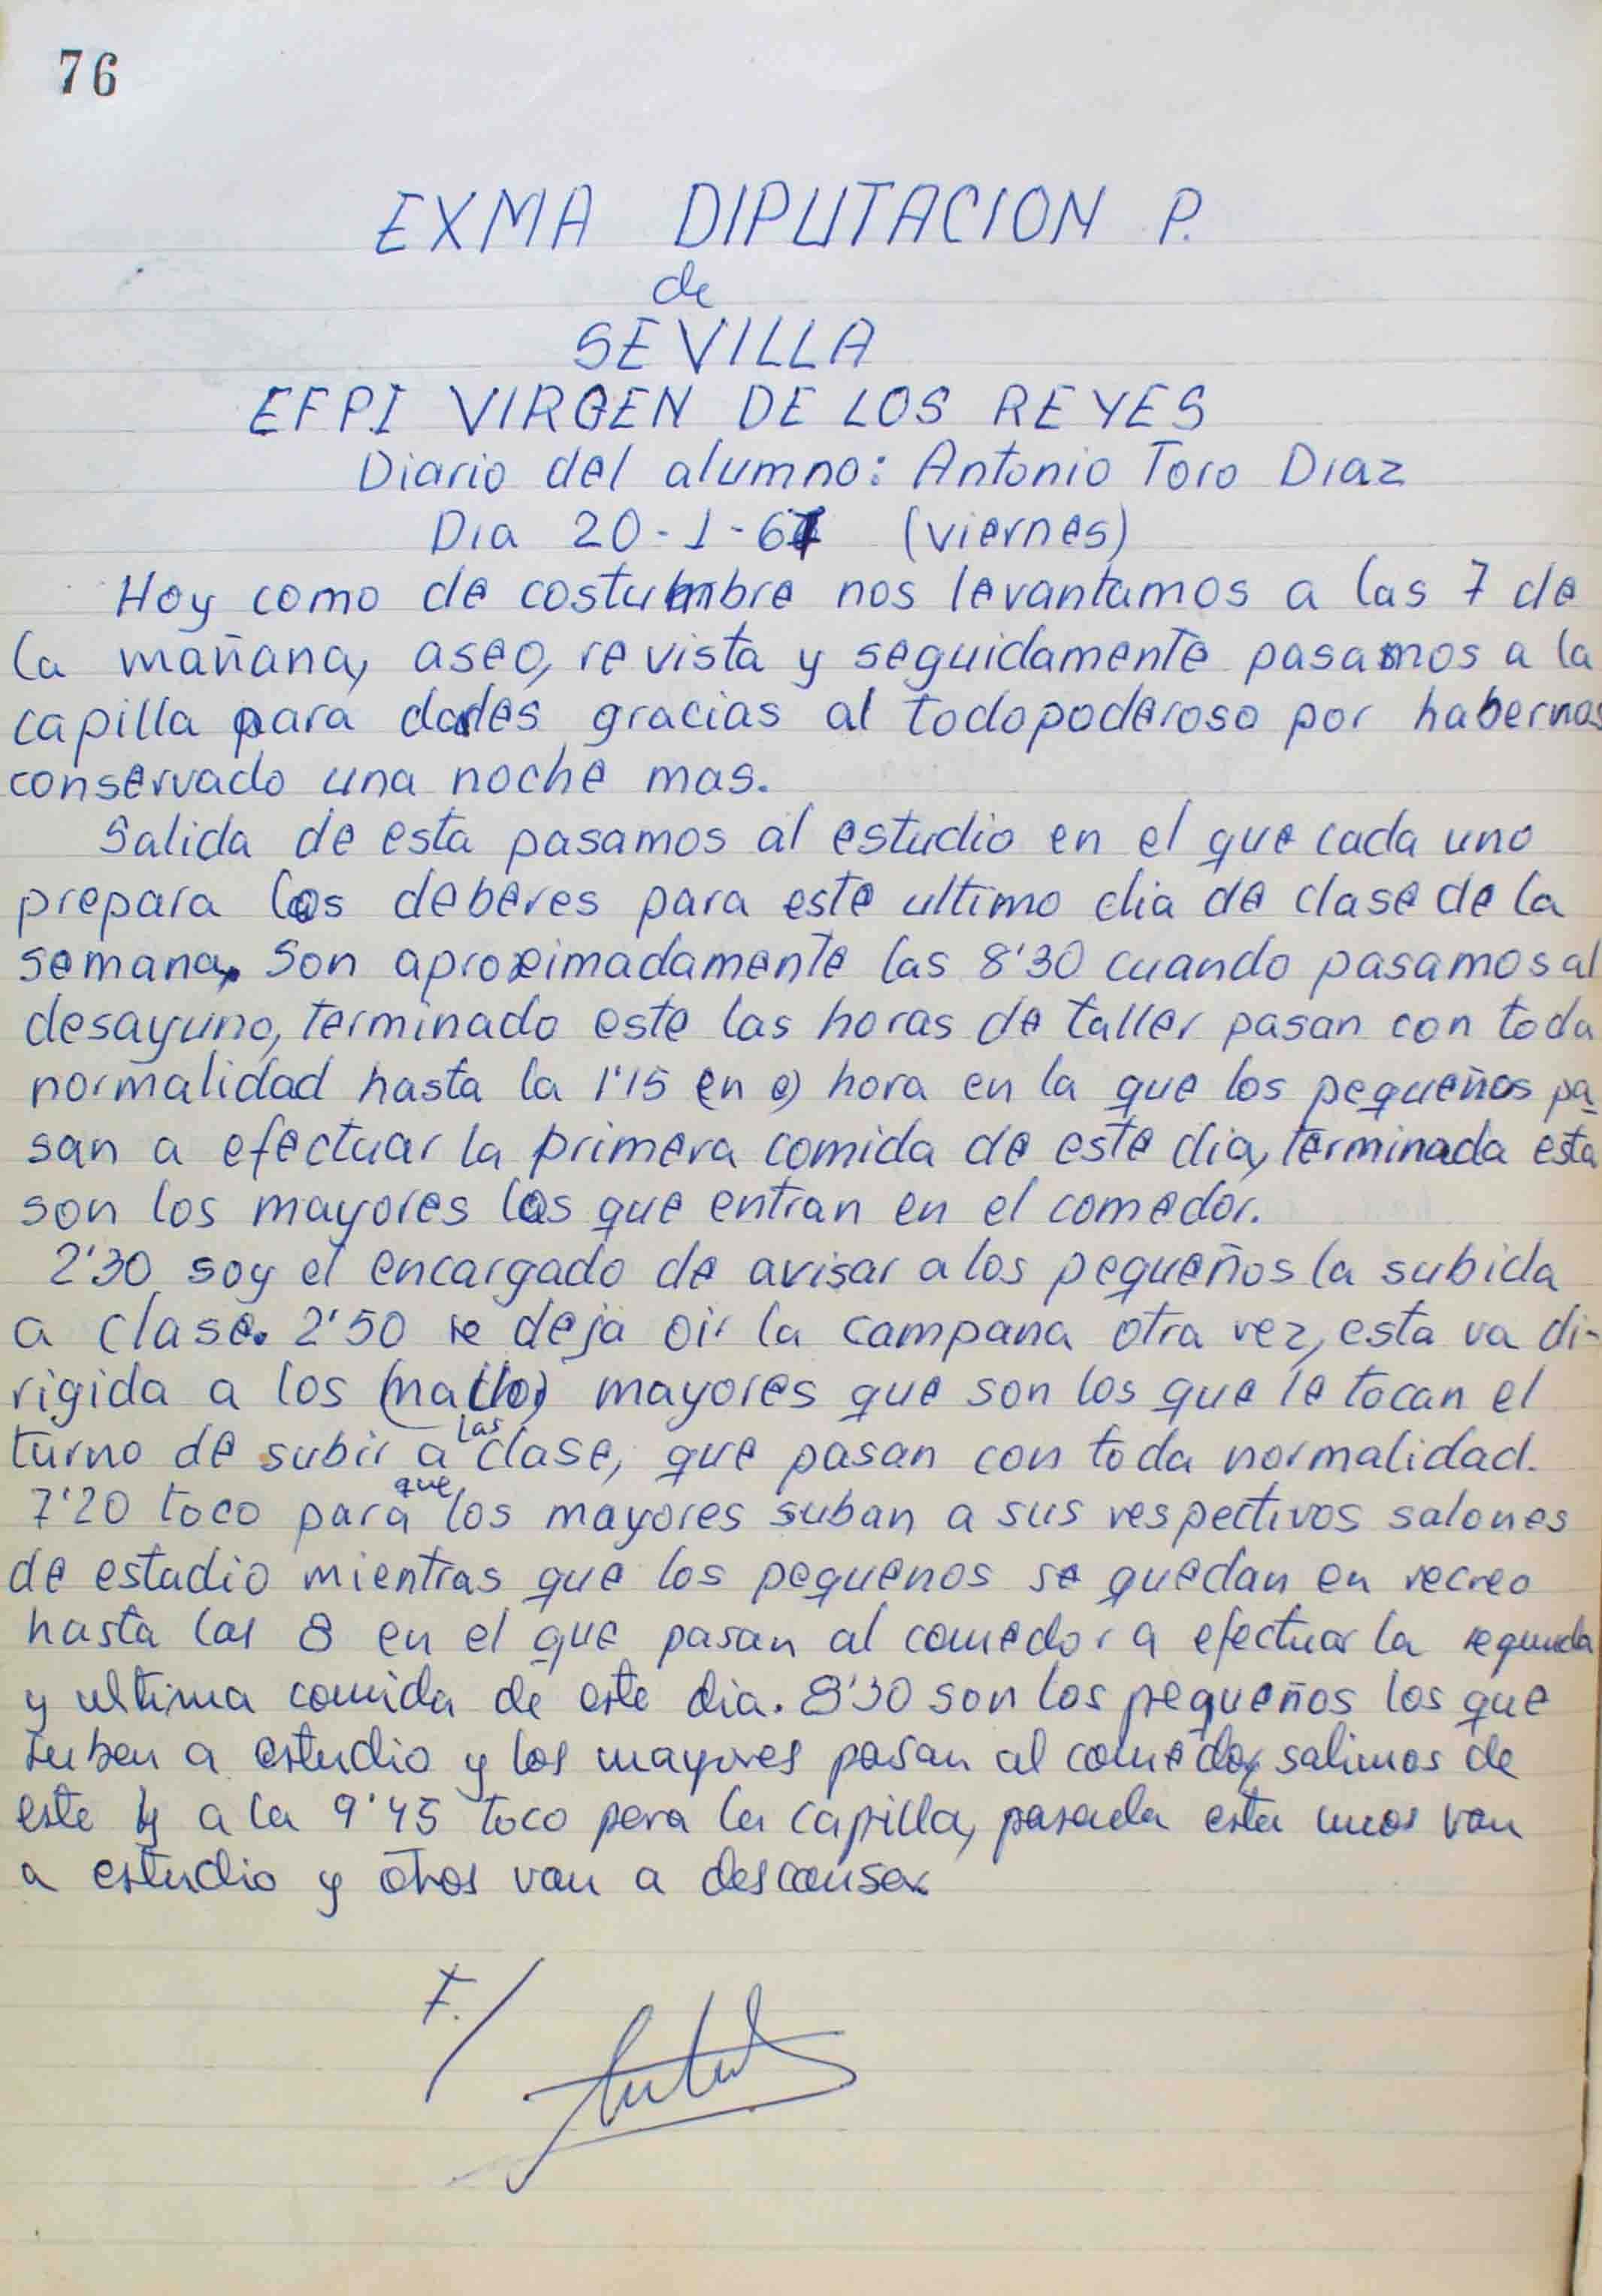 76
EXMA DIPUTACION P.
de
SEVILLA
EFPI VIRGEN DE LOS REYES
Diario del alumno: Antonio Toro Diaz
Dia 20-1-67 (viernes)
Hoy como de costumbre nos levantamos a las 7 de
la mañana, aseo, revista y seguidamente pasamos a la
capilla para darles gracias al todopoderoso por habernos
conservado una noche mas.
Salida de esta pasamos al estudio en el que cada uno
prepara los deberes para este ultimo dia de clase de la
semana. Son aproximadamente las 8'30 cuando pasamos al
desayuno, terminado este las horas de taller pasan con toda
normalidad hasta la 1'15 (en e) hora en la que los pequeños pa-
san a efectuar la primera comida de este dia, terminada esta
son los mayores los que entran en el comedor.
2'30 soy el encargado de avisar a los pequeños la subida
a clase. 2'50 se deja oir la campana otra vez, esta va di-
rigida a los mayores que son los que le tocan el
turno de subir a las clase, que pasan con toda normalidad.
7'20 toco para que los mayores suban a sus respectivos salones
de estudio mientras que los pequenos se quedan en recreo
hasta las 8 en el que pasan al comedor a efectuar la segunda
y ultima comida de este dia. 8'30 son los pequeños los que
suben a estudio y los mayores pasan al comedor, salimos de
este y a la 9'45 toco para la capilla, pasada esta unos van
a estudio y otros van a descansar.
F./